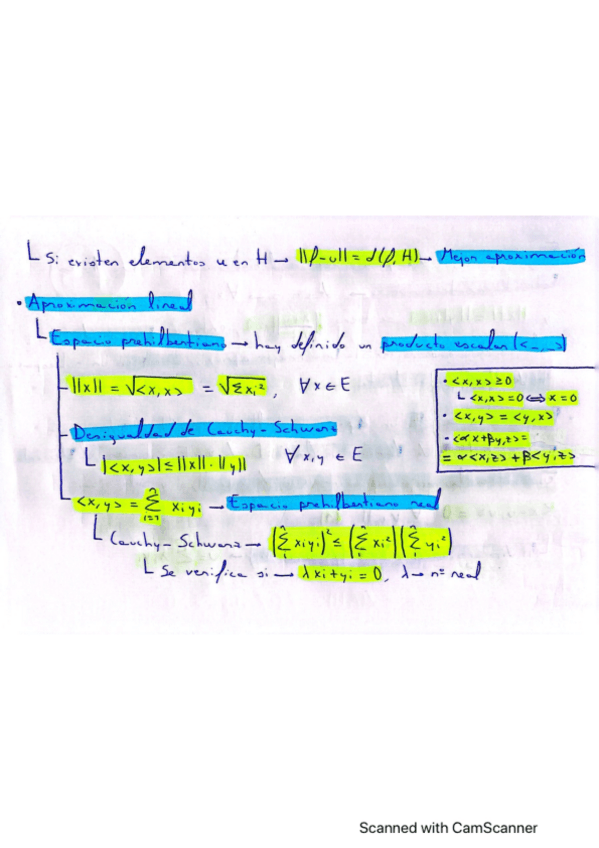 └ Si existen elementos u en H → ||f-u|| = d(f,H) → Mejor aproximación
• Aproximación lineal
└ Espacio prehilbertiano → hay definido un producto escalar (<_,_>)
- ||x|| = √<x,x> = √Σxi², ∀x∈E
• <x,x> ≥ 0
└ <x,x> = 0 ⟺ x = 0
• <x,y> = <y,x>
• <αx+βy,z> =
= α<x,z> + β<y,z>
- Desigualdad de Cauchy-Schwarz
└ |<x,y>| ≤ ||x||·||y|| ∀x,y ∈ E
<x,y> = Σ_{i=1}^{n} xi yi → Espacio prehilbertiano real
└ Cauchy-Schwarz → (Σ_{1}^{n} xi yi)² ≤ (Σ_{1}^{n} xi²)(Σ_{1}^{n} yi²)
└ Se verifica si → λxi + yi = 0, λ → nº real
Scanned with CamScanner